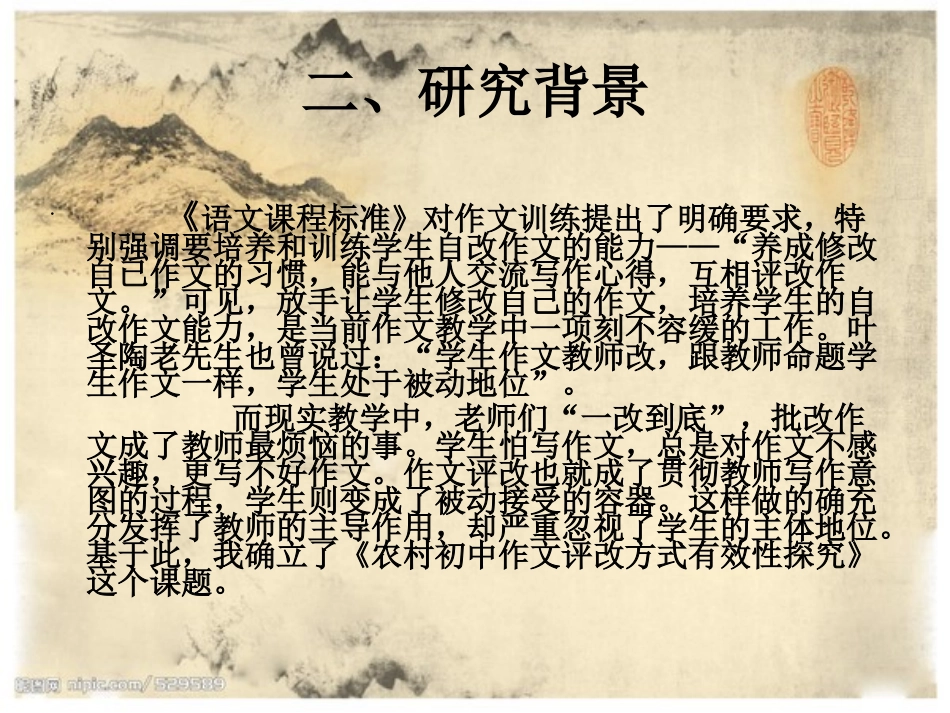 二、研究背景
《语文课程标准》对作文训练提出了明确要求，特
别强调要培养和训练学生自改作文的能力——“养成修改
自己作文的习惯，能与他人交流写作心得，互相评改作
文。”可见，放手让学生修改自己的作文，培养学生的自
改作文能力，是当前作文教学中一项刻不容缓的工作。叶
圣陶老先生也曾说过：“学生作文教师改，跟教师命题学
生作文一样，学生处于被动地位”。
而现实教学中，老师们“一改到底”，批改作
文成了教师最烦恼的事。学生怕写作文，总是对作文不感
兴趣，更写不好作文。作文评改也就成了贯彻教师写作意
图的过程，学生则变成了被动接受的容器。这样做的确充
分发挥了教师的主导作用，却严重忽视了学生的主体地位。
基于此，我确立了《农村初中作文评改方式有效性探究》
这个课题。
昵图网 nipic.com/529589